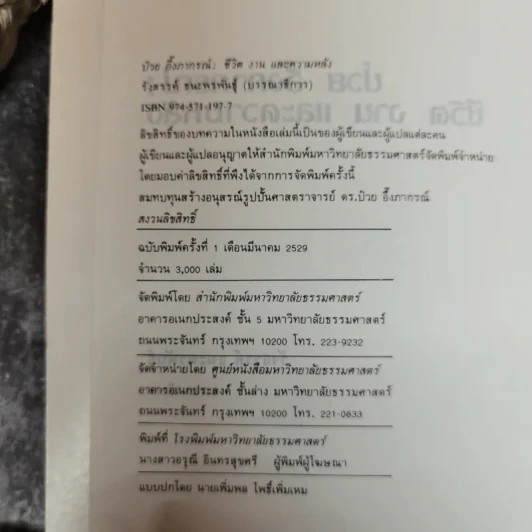 ป๋วย อึ๊งภากรณ์: ชีวิต งาน และความหลัง
รังสรรค์ ธนะพรพันธุ์ (บรรณาธิการ)
ISBN 974-571-197-7
ลิขสิทธิ์ของบทความในหนังสือเล่มนี้เป็นของผู้เขียนและผู้แปลแต่ละคน
ผู้เขียนและผู้แปลอนุญาตให้สำนักพิมพ์มหาวิทยาลัยธรรมศาสตร์จัดพิมพ์จำหน่าย
โดยมอบค่าลิขสิทธิ์ที่พึงได้จากการจัดพิมพ์ครั้งนี้
สมทบทุนสร้างอนุสรณ์รูปปั้นศาสตราจารย์ ดร.ป๋วย อึ๊งภากรณ์
สงวนลิขสิทธิ์
ฉบับพิมพ์ครั้งที่ 1 เดือนมีนาคม 2529
จำนวน 3,000 เล่ม
จัดพิมพ์โดย สำนักพิมพ์มหาวิทยาลัยธรรมศาสตร์
อาคารอเนกประสงค์ ชั้น 5 มหาวิทยาลัยธรรมศาสตร์
ถนนพระจันทร์ กรุงเทพฯ 10200 โทร. 223-9232
จัดจำหน่ายโดย ศูนย์หนังสือมหาวิทยาลัยธรรมศาสตร์
อาคารอเนกประสงค์ ชั้นล่าง มหาวิทยาลัยธรรมศาสตร์
ถนนพระจันทร์ กรุงเทพฯ 10200 โทร. 221-0633
พิมพ์ที่ โรงพิมพ์มหาวิทยาลัยธรรมศาสตร์
นางสาวอรุณี อินทรสุขศรี ผู้พิมพ์ผู้โฆษณา
แบบปกโดย นายเพิ่มพล โพธิ์เพิ่มเหม